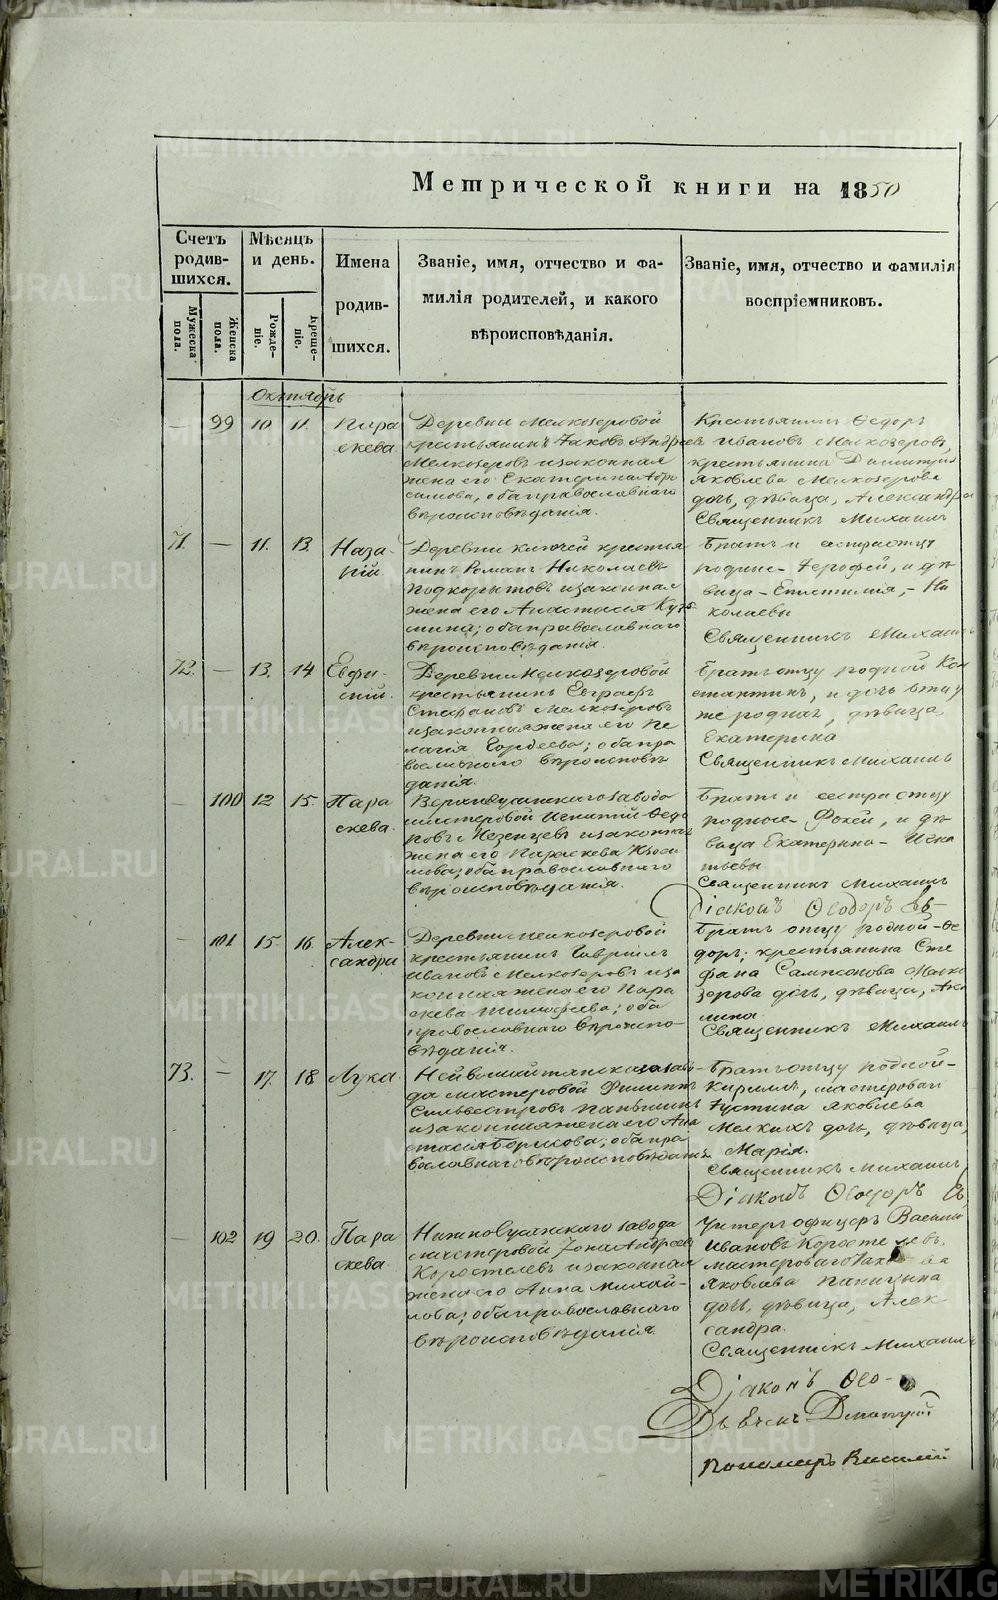 Метрической книги на 1850
Счетъ родив-шихся.
Мужеска пола.
Женска пола.
Мѣсяцъ и день.
Рожде-ніе.
Креще-ніе.
Имена
родив-
шихся.
Званіе, имя, отчество и фа-
милія родителей, и какого
вѣроисповѣданія.
Званіе, имя, отчество и фамилія
воспріемниковъ.
Октябрь
— 99 10 11. Пара
скева.
Деревни Мелкозеровой
крестьянинъ Іаковъ Андреевъ
Мелкозеровъ и законная
жена его Екатерина
оба православнаго
вѣроисповѣданія.
Крестьянинъ Ѳедоръ
Ивановъ Мелкозеровъ,
крестьянина Димитрія
Яковлева Мелкозерова
дочь, дѣвица, Александра
Священникъ Михаилъ
71. — 11. 13. Наза-
рій.
Деревни Ключей крестья
нинъ Романъ Николаевъ
Подкорытовъ и законная
жена его Анастасія Кузь
мина; оба православнаго
вѣроисповѣданія.
Братъ и сестра отцу
родные Іерофей, и дѣ
вица Епистимія, Ни
колаевы
Священникъ Михаилъ
72. — 13. 14 Евфи-
мій.
Деревни Мелкозеровой
крестьянинъ Евграфъ
Стефановъ Мелкозеровъ
и законная жена его Пе
лагія Гордеева; оба пра
вославнаго вѣроисповѣ
данія.
Братъ отцу родной Кон
стантинъ, и дочь отцу
же родная, дѣвица
Екатерина
Священникъ Михаилъ
— 100 12 15. Пара
скева.
завода
мастеровой Игнатий Ѳедо
ровъ и законная
жена его Параскева
оба православнаго
вѣроисповѣданія.
Братъ и сестра отцу
родные Фокей, и дѣ
вица Екатерина Игна
тьевы
Священникъ Михаилъ
Діаконъ Ѳеодоръ
— 101 15 16. Алек-
сандра
Деревни Мелкозеровой
крестьянинъ Гавріилъ
Ивановъ Мелкозеровъ и за
конная жена его Пара
скева Тимофеева; оба
православнаго вѣроиспо-
вѣданія.
Братъ отцу родной Ѳе
доръ; крестьянина Сте
фана Сампсонова Мелко
зерова дочь, дѣвица, Аки
лина.
Священникъ Михаилъ
73. — 17. 18 Лука.
Нейвошайтанскаго заво-
да мастеровой Филиппъ
Сильвестровъ Паньшинъ
и законная жена его Ана
стасія Борисова; оба пра
вославнаго вѣроисповѣданія
Братъ отцу родной
Кириллъ, мастероваго
Іустина Яковлева
Мелкихъ дочь, дѣвица,
Марія.
Священникъ Михаилъ
Діаконъ Ѳеодоръ
— 102 19 20. Пара
скева.
завода
мастеровой Іона Андреевъ
Коростелевъ и законная
жена его Анна Михай-
лова; оба православнаго
вѣроисповѣданія.
Унтеръ офицеръ Василій
Ивановъ Коростелевъ,
мастероваго
Яковлева Паницына
дочь, дѣвица, Алек
сандра.
Священникъ Михаилъ
Діаконъ Ѳео-
Дьячекъ Димитрій
Пономарь Василій
METRIKI.GASO-URAL.RU